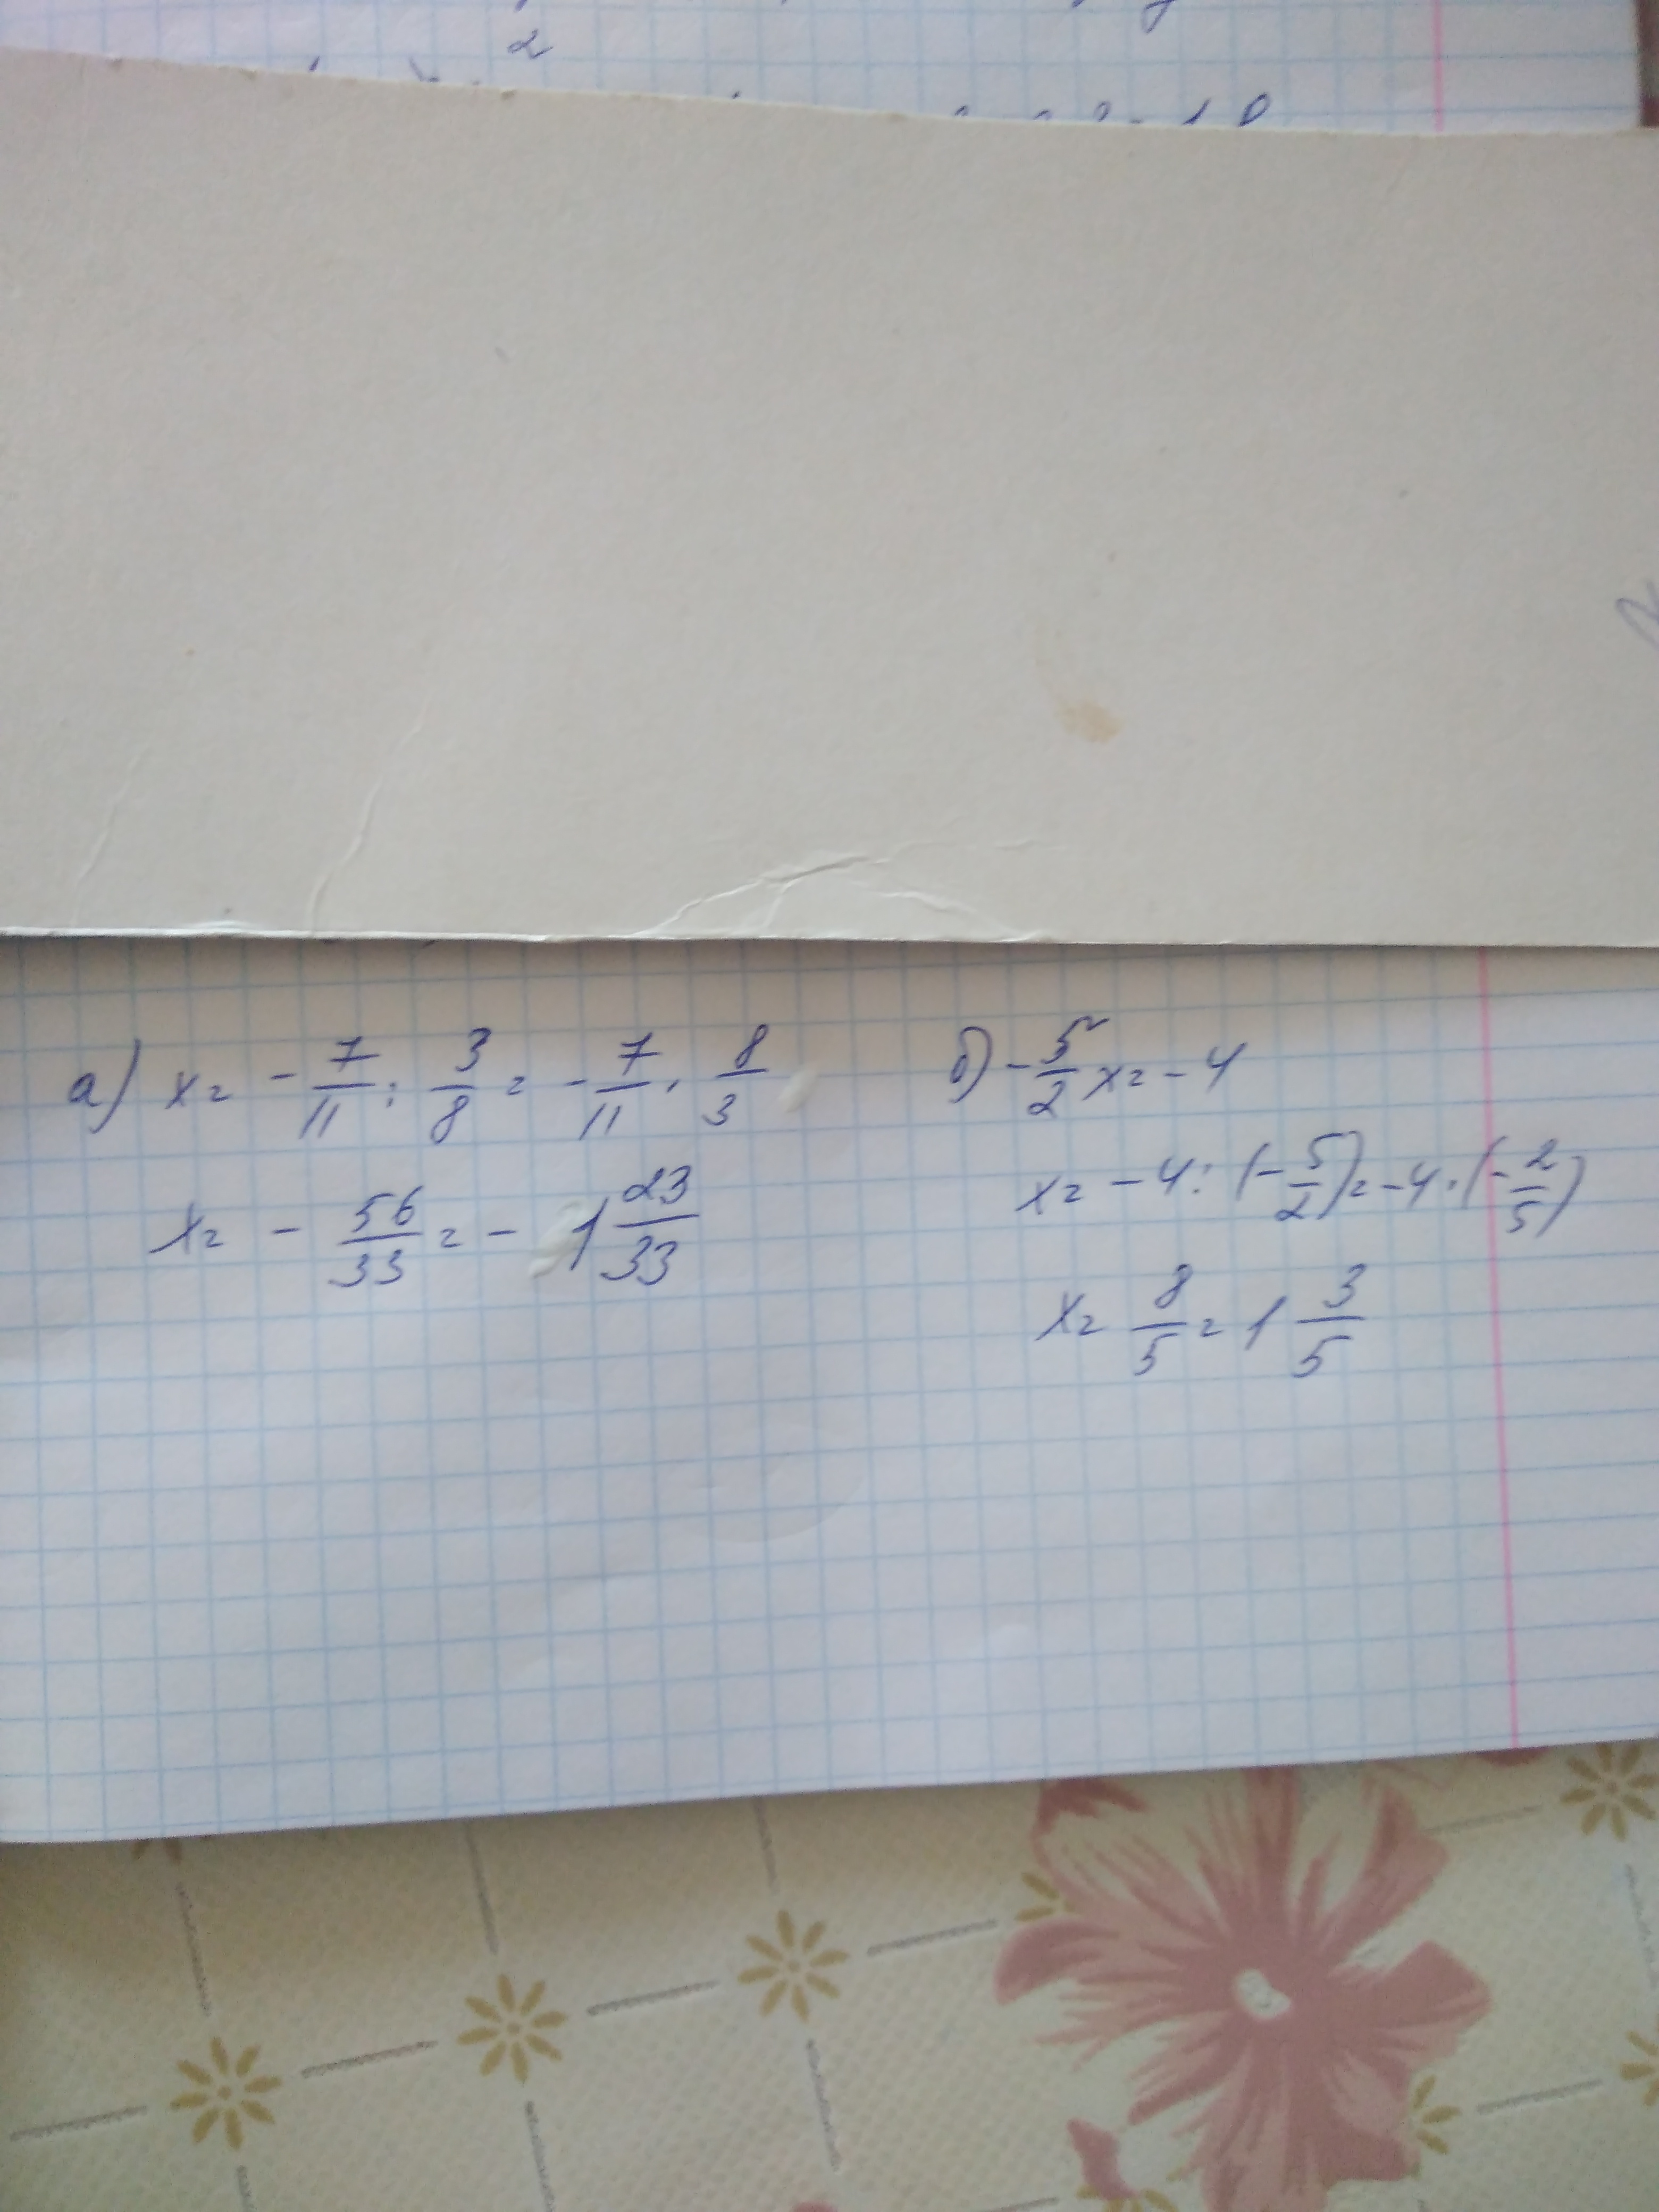 2
а) x = - 7/11 : 3/8 = - 7/11 · 8/3
x = - 56/33 = - 1 23/33
б) - 5/2 x = - 4
x = - 4 : (- 5/2) = - 4 · (- 2/5)
x = 8/5 = 1 3/5